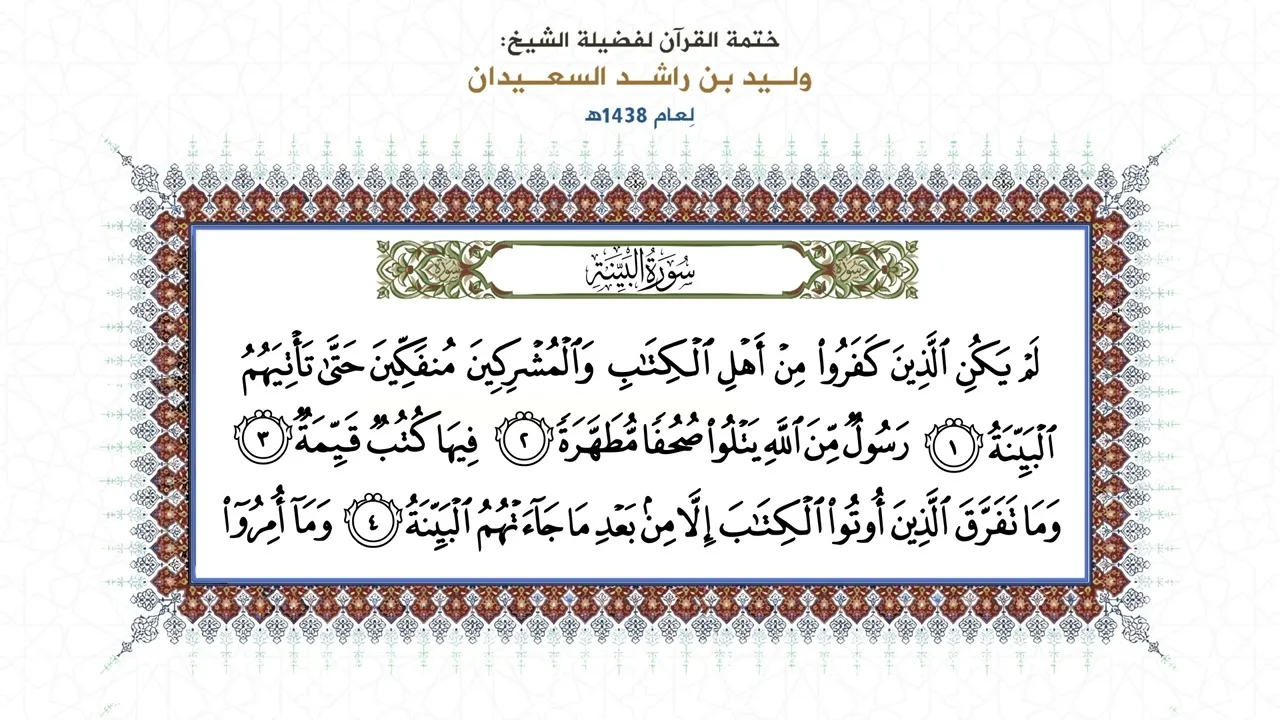 ختمة القرآن لفضيلة الشيخ:
وليد بن راشد السعيدان
لِعام 1438هـ
سورة سُورَةُ البَيِّنَةِ سورة
لَمْ يَكُنِ ٱلَّذِينَ كَفَرُوا۟ مِنْ أَهْلِ ٱلْكِتَٰبِ وَٱلْمُشْرِكِينَ مُنفَكِّينَ حَتَّىٰ تَأْتِيَهُمُ
ٱلْبَيِّنَةُ ١ رَسُولٌ مِّنَ ٱللَّهِ يَتْلُوا۟ صُحُفًا مُّطَهَّرَةً ٢ فِيهَا كُتُبٌ قَيِّمَةٌ ٣
وَمَا تَفَرَّقَ ٱلَّذِينَ أُوتُوا۟ ٱلْكِتَٰبَ إِلَّا مِنۢ بَعْدِ مَا جَآءَتْهُمُ ٱلْبَيِّنَةُ ٤ وَمَآ أُمِرُوٓا۟